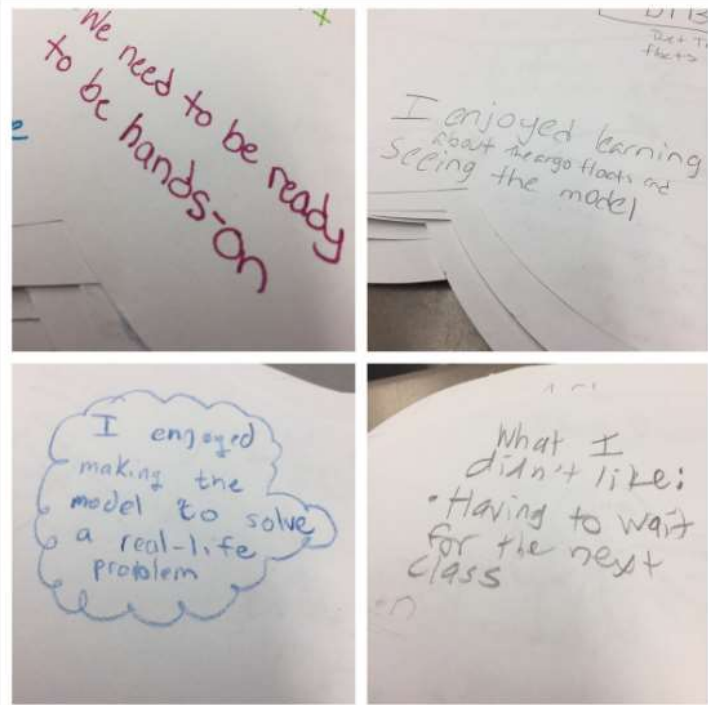 We need to be ready
to be hands-on
Due to
floats
I enjoyed learning
about the argo floats and
seeing the model
I enjoyed
making the
model to solve
a real-life
problem
What I
didn't like:
• Having to wait
for the next
class